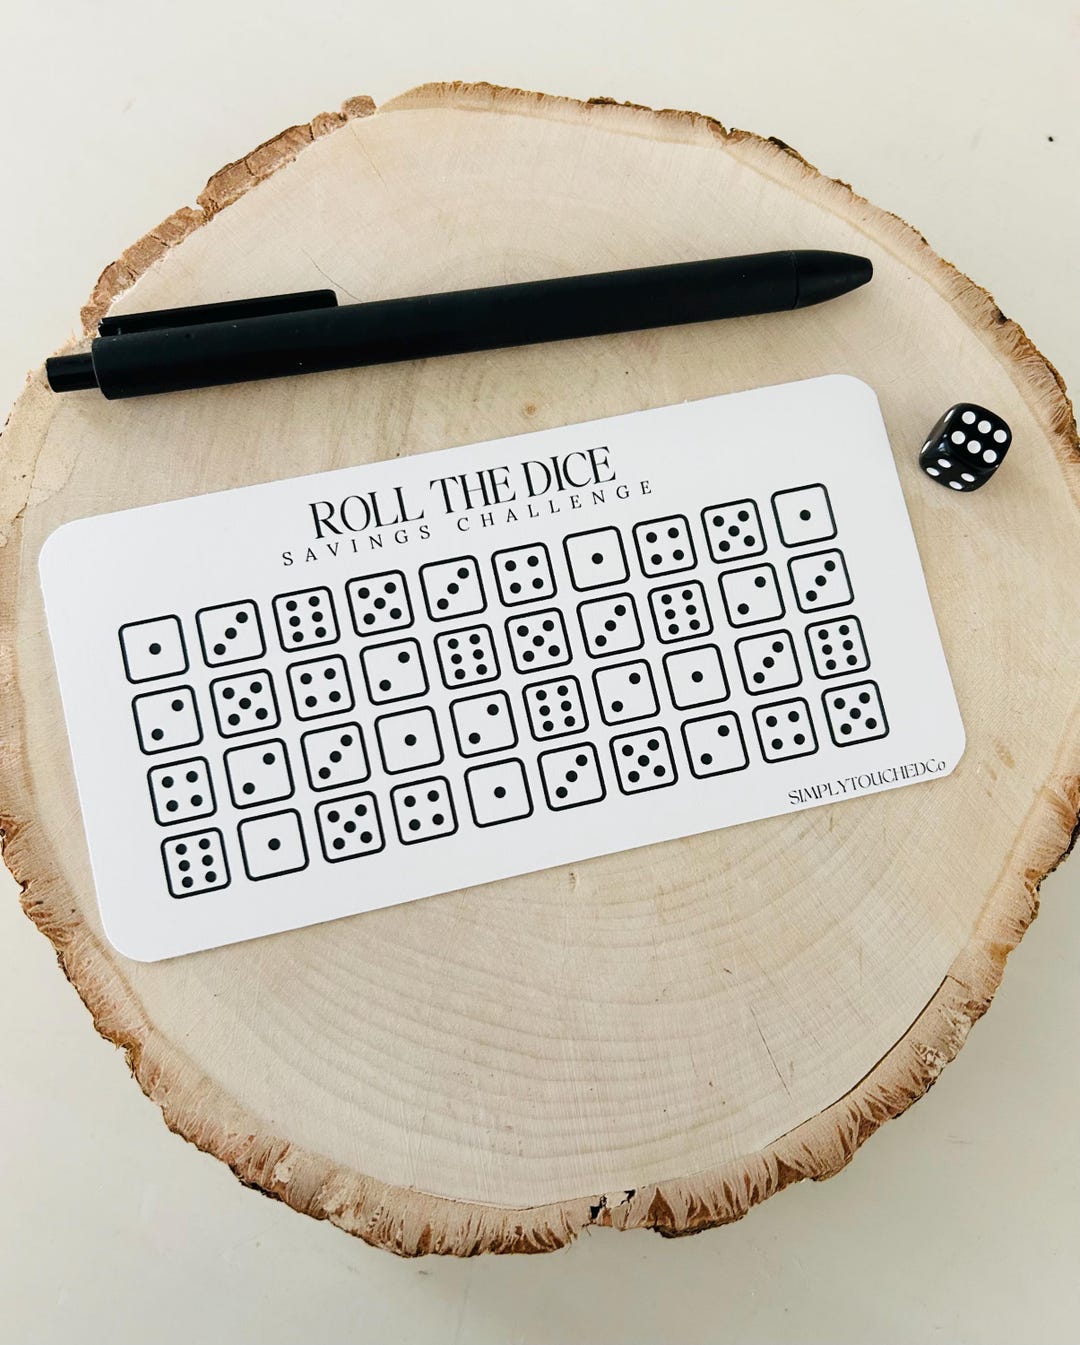 ROLL THE DICE
SAVINGS CHALLENGE
SIMPLYTOUCHEDCo